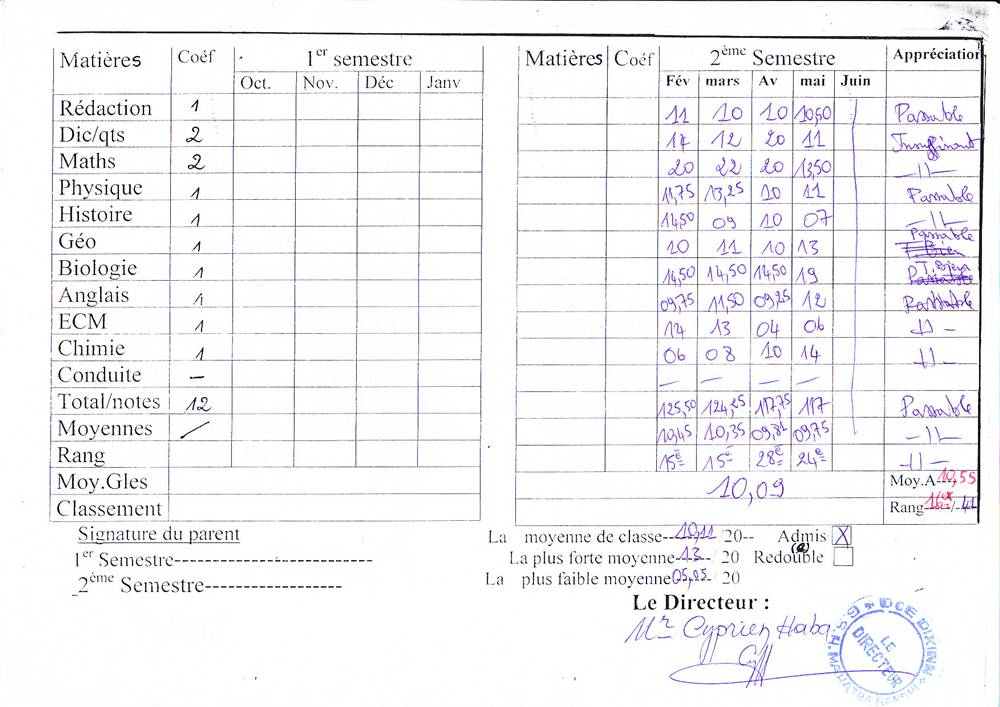 Matières Coéf 1er semestre Matières Coéf 2ème Semestre Appréciation
Oct. Nov. Déc Janv Fév mars Av mai Juin
Rédaction 1 11 10 10 10,50 Passable
Dic/qts 2 17 12 20 11 Insuffisant
Maths 2 20 22 20 13,50 -11-
Physique 1 11,75 13,25 10 11 Passable
Histoire 1 14,50 09 10 07 -11-
Géo 1 10 11 10 13 Passable T. Bien
Biologie 1 14,50 14,50 14,50 19 T. Bien Passable
Anglais 1 09,75 11,50 09,25 12 Passable
ECM 1 12 13 04 06 -11-
Chimie 1 06 08 10 14 -11-
Conduite - - - - -
Total/notes 12 125,50 124,25 117,75 117 Passable
Moyennes 10,45 10,35 09,81 09,75 -11-
Rang 15e 15e 28e 24e -11-
Moy.Gles 10,09 Moy.A-10,55
Classement Rang-16e-/-41
Signature du parent
La moyenne de classe--10,11/20-- Admis X
1er Semestre-------------------------
La plus forte moyenne-13--/ 20 Redouble (e)
2ème Semestre------------------
La plus faible moyenne05,25-/ 20
Le Directeur :
Mr Cyprien Haba
G.S.H. MAHATMA GANDHI * DCE DIXINN *
LE DIRECTEUR